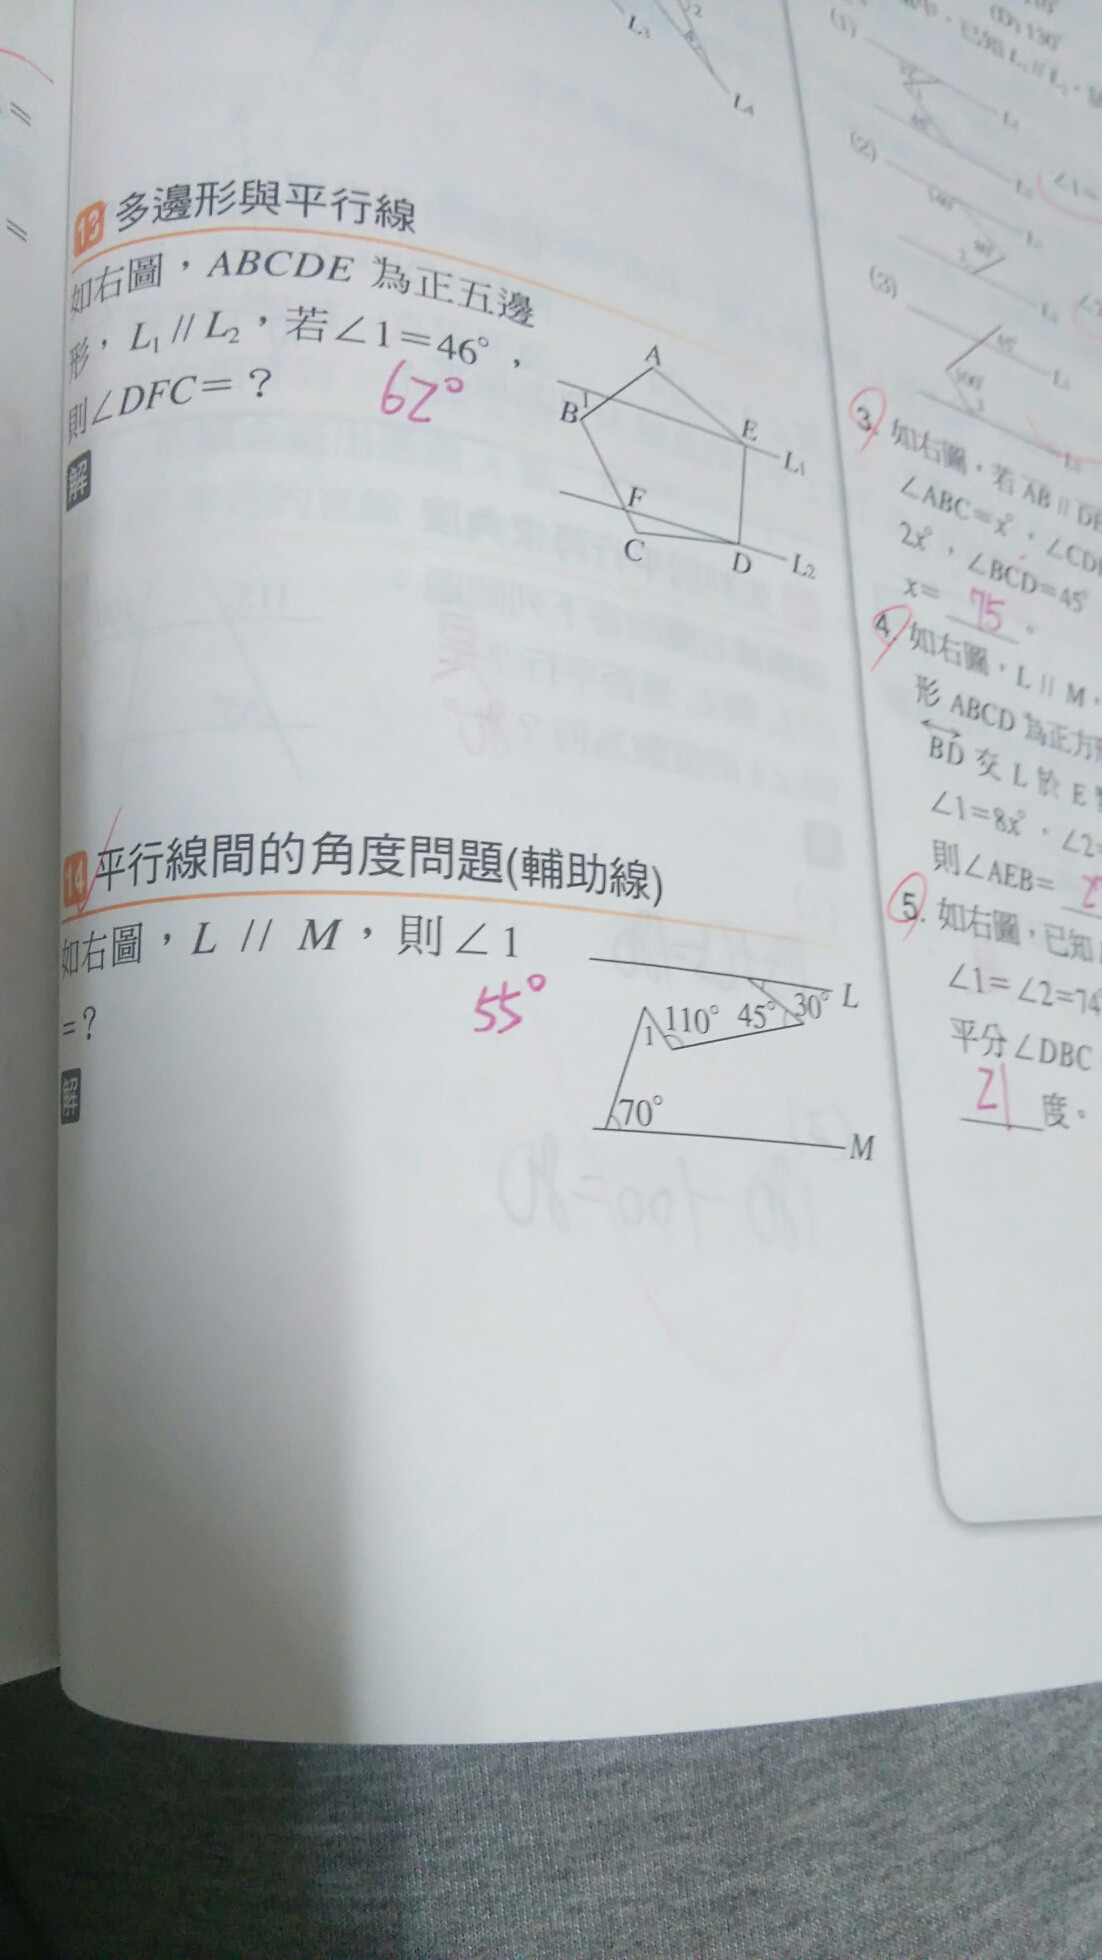 L₃
2
L₄
13 多邊形與平行線
如右圖，ABCDE 為正五邊
形，L₁ // L₂，若∠1＝46°，
則∠DFC＝？
62°
解
A
B
1
E
L₁
F
C
D
L₂
14 平行線間的角度問題(輔助線)
如右圖，L // M，則∠1
＝？
55°
解
L
110° 45° 30°
1
70°
M
(D) 130°
(1)
(2)
(3)
3. 如右圖，若 AB // DE
∠ABC＝x°，∠CD
2x°，∠BCD＝45°
x＝ 75 。
4. 如右圖，L // M，
形 ABCD 為正方
BD 交 L 於 E
∠1＝8x°，∠2＝
則∠AEB＝
5. 如右圖，已知
∠1＝∠2＝74°
平分∠DBC
21 度。